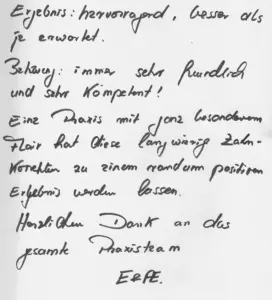 Ergebnis: hervorragend, besser als
je erwartet.
Betreuung: immer sehr freundlich
und sehr kompetent!
Eine Praxis mit ganz besonderem
Flair hat diese langwierige Zahn-
korrektur zu einem rundum positiven
Ergebnis werden lassen.
Herzlichen Dank an das
gesamte Praxisteam